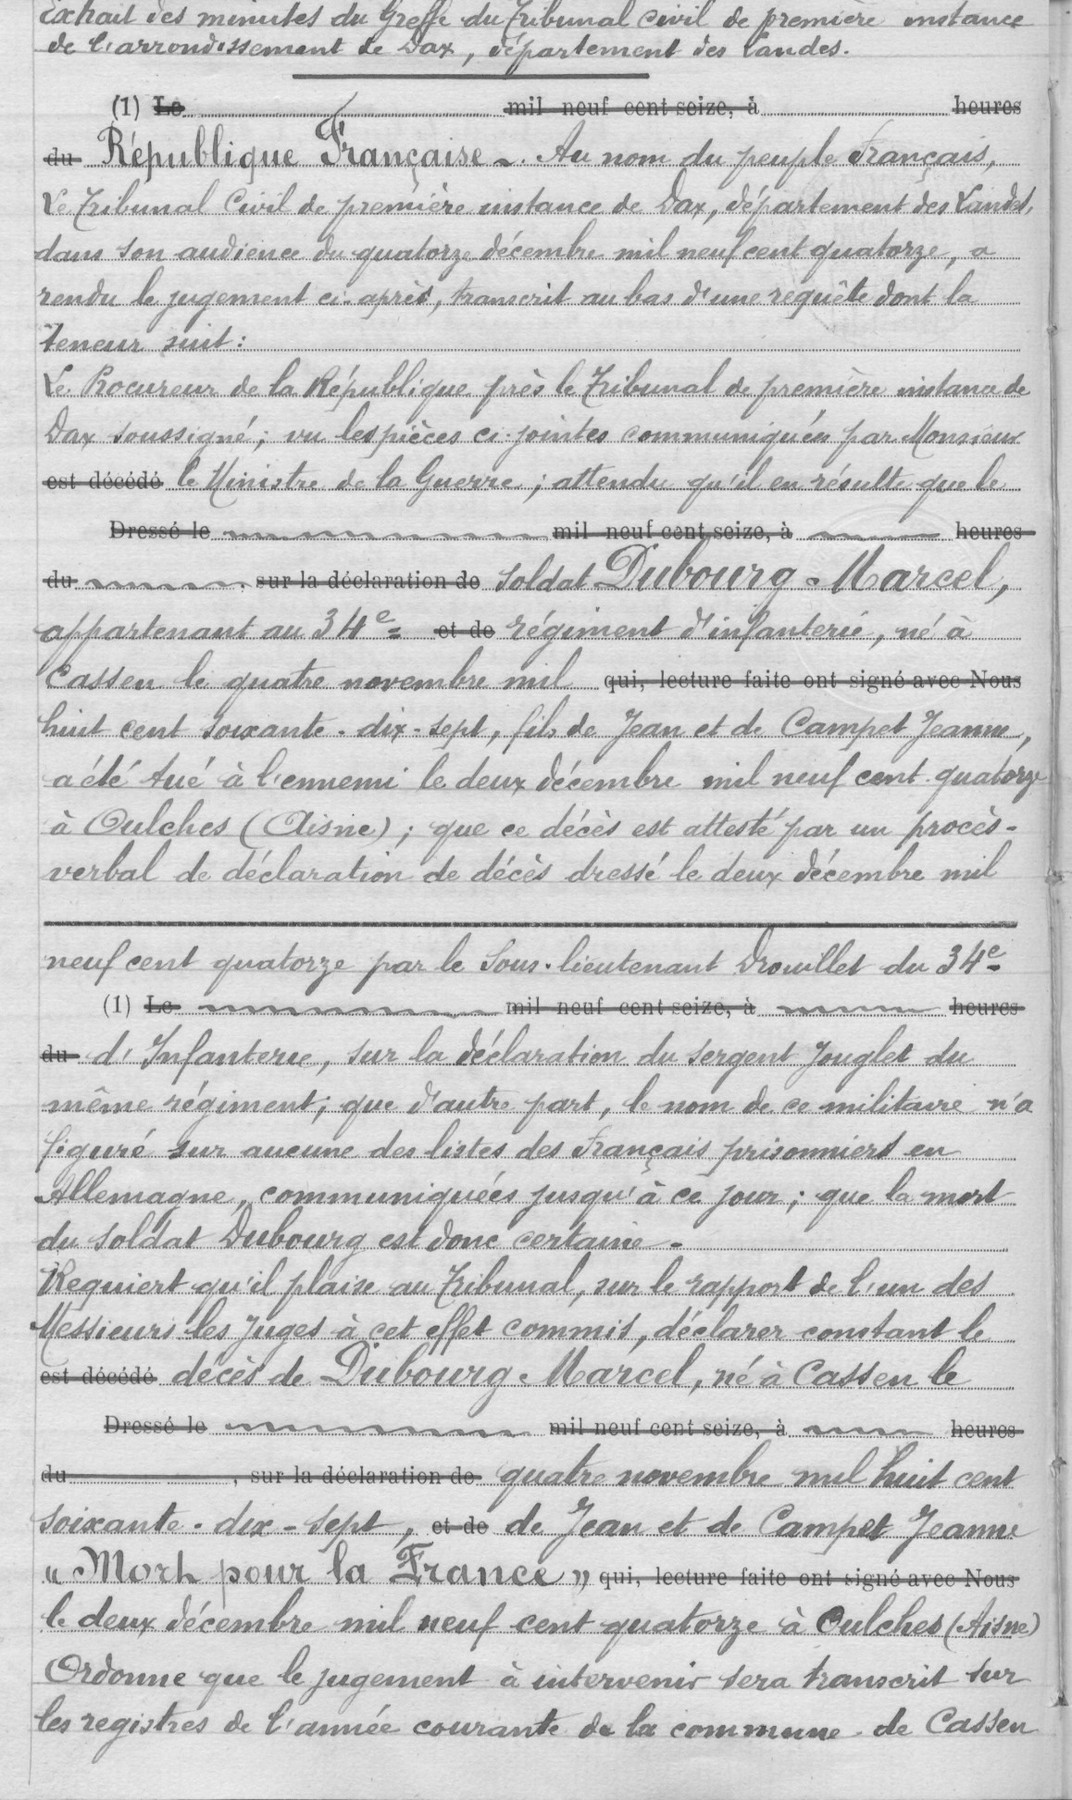 Extrait des minutes du Greffe du Tribunal civil de première instance
de l'arrondissement de Dax, département des Landes.
(1) Le mil neuf cent seize, à heures
du République Française -. Au nom du peuple Français,
Le Tribunal Civil de première instance de Dax, département des Landes,
dans son audience du quatorze décembre mil neuf cent quatorze, a
rendu le jugement ci-après, transcrit au bas d'une requête dont la
teneur suit :
Le Procureur de la République près le Tribunal de première instance de
Dax soussigné ; vu les pièces ci-jointes communiquées par Monsieur
est décédé le Ministre de la Guerre ; attendu qu'il en résulte que le
Dressé le mil neuf cent seize, à heures
du , sur la déclaration de soldat Dubourg - Marcel,
appartenant au 34e et de régiment d'infanterie, né à
Cassen le quatre novembre mil qui, lecture faite ont signé avec Nous
huit cent soixante-dix-sept, fils de Jean et de Campet Jeanne,
a été tué à l'ennemi le deux décembre mil neuf cent quatorze
à Oulches (Aisne) ; que ce décès est attesté par un procès-
verbal de déclaration de décès dressé le deux décembre mil
neuf cent quatorze par le Sous-lieutenant Drouillet du 34e
(1) Le mil neuf cent seize, à heures
du d'Infanterie, sur la déclaration du sergent Jouglet du
même régiment ; que d'autre part, le nom de ce militaire n'a
figuré sur aucune des listes des Français prisonniers en
Allemagne, communiquées jusqu'à ce jour ; que la mort
du soldat Dubourg est donc certaine -
Requiert qu'il plaise au Tribunal, sur le rapport de l'un des
Messieurs les Juges à cet effet commis, déclarer constant le
est décédé décès de Dubourg Marcel, né à Cassen le
Dressé le mil neuf cent seize, à heures
du , sur la déclaration de quatre novembre mil huit cent
soixante-dix-sept, et de de Jean et de Campet Jeanne
« Mort pour la France » qui, lecture faite ont signé avec Nous
le deux décembre mil neuf cent quatorze à Oulches (Aisne)
Ordonne que le jugement à intervenir sera transcrit sur
les registres de l'année courante de la commune de Cassen